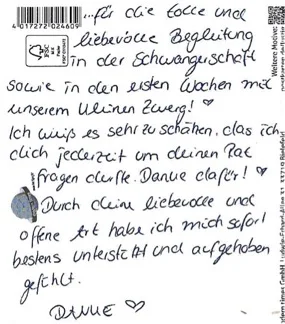 4 017272 024609
...für die tolle und
liebevolle Begleitung
in der Schwangerschaft
sowie in den ersten Wochen mit
unserem kleinen Zwerg! ♡
Ich weiß es sehr zu schätzen, das ich
dich jederzeit um deinen Rat
fragen durfte. Danke dafür! ♡
Durch deine liebevolle und
offene Art habe ich mich sofort
bestens unterstützt und aufgehoben
gefühlt.
DANKE ♡
FSC
Weitere Motive: